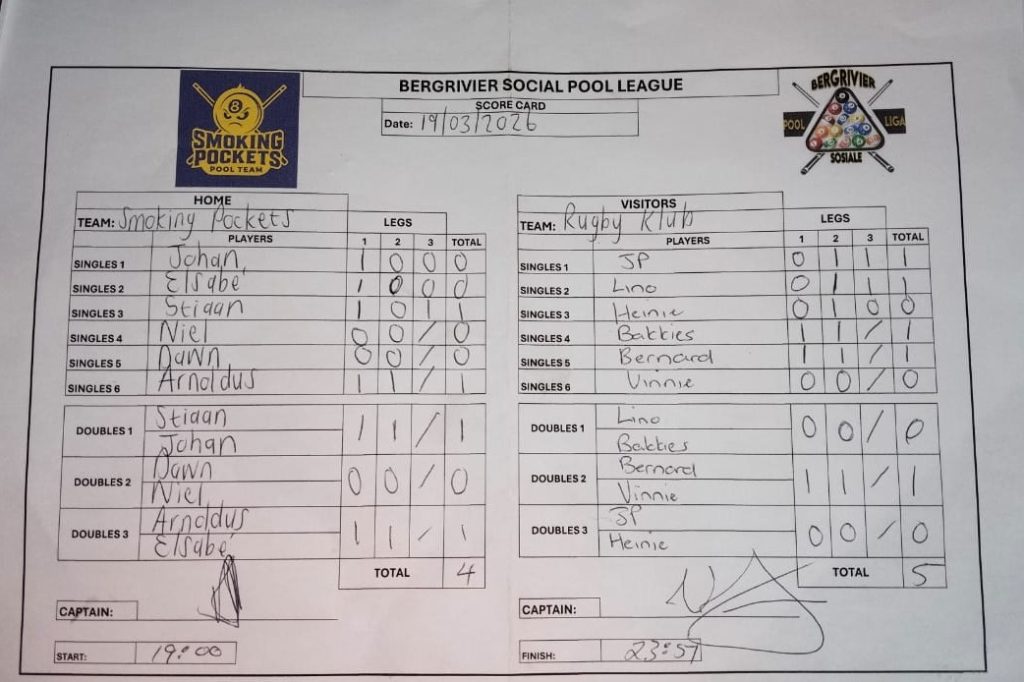 BERGRIVIER SOCIAL POOL LEAGUE
SCORE CARD
Date: 19/03/2026
8
SMOKING
POCKETS
POOL TEAM
BERGRIVIER
POOL LIGA
SOSIALE
HOME
TEAM: Smoking Pockets LEGS
PLAYERS 1 2 3 TOTAL
SINGLES 1 Johan 1 0 0 0
SINGLES 2 Elsabé 1 0 0 0
SINGLES 3 Stiaan 1 0 1 1
SINGLES 4 Niel 0 0 / 0
SINGLES 5 Dawn 0 0 / 0
SINGLES 6 Arnoldus 1 1 / 1
DOUBLES 1 Stiaan 1 1 / 1
Johan
DOUBLES 2 Dawn 0 0 / 0
Niel
DOUBLES 3 Arnoldus 1 1 / 1
Elsabé
TOTAL 4
CAPTAIN:
START: 19:00
VISITORS
TEAM: Rugby Klub LEGS
PLAYERS 1 2 3 TOTAL
SINGLES 1 JP 0 1 1 1
SINGLES 2 Lino 0 1 1 1
SINGLES 3 Heinie 0 1 0 0
SINGLES 4 Bakkies 1 1 / 1
SINGLES 5 Bernard 1 1 / 1
SINGLES 6 Vinnie 0 0 / 0
DOUBLES 1 Lino 0 0 / 0
Bakkies
DOUBLES 2 Bernard 1 1 / 1
Vinnie
DOUBLES 3 JP 0 0 / 0
Heinie
TOTAL 5
CAPTAIN:
FINISH: 23:57